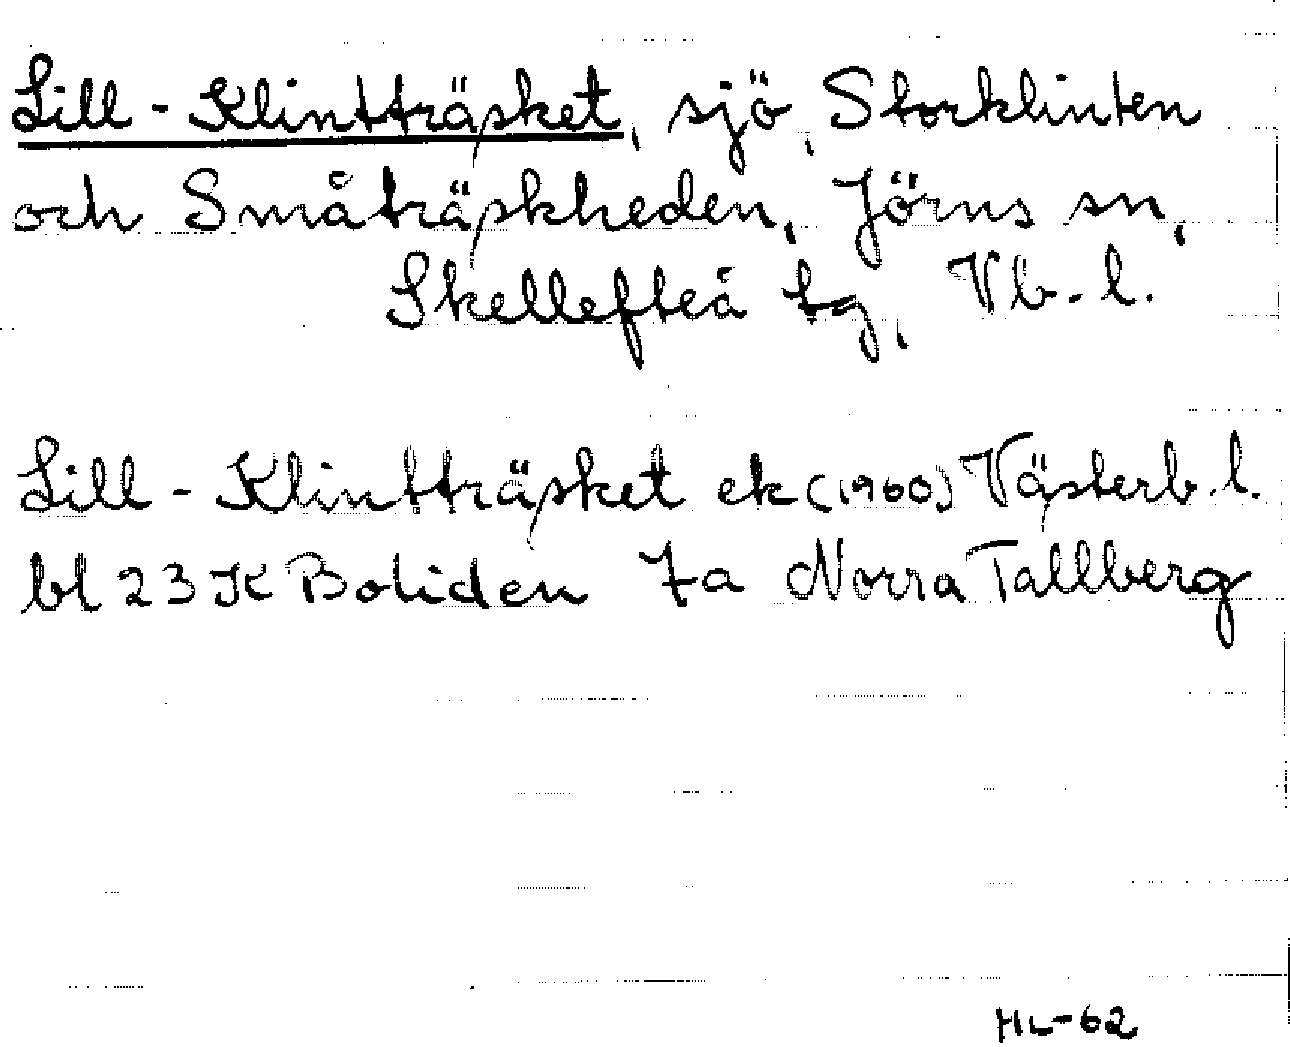 Lill-Klintträsket, sjö, Storklinten
och Småträskheden, Jörns sn,
Skellefteå tg, Vb. l.
Lill-Klintträsket ek (1960) Västerb. l.
bl 23 K Boliden 7a Norra Tallberg
HL-62